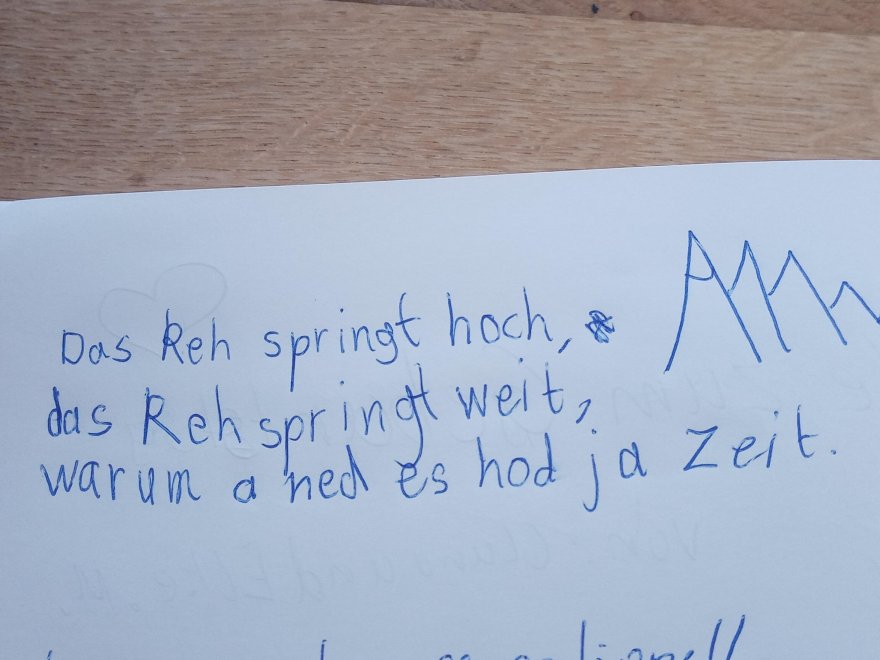 Das Reh springt hoch,
das Reh springt weit,
warum a ned es hod ja Zeit.